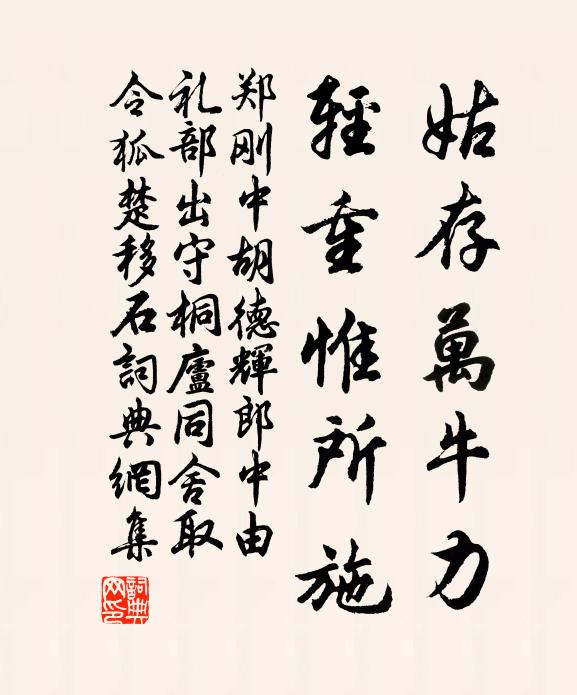 姑存萬牛力
輕重惟所施
郑刚中胡德輝郎中由
礼部出守桐廬同舍取
令狐楚移石詞典網集
詞典
网印